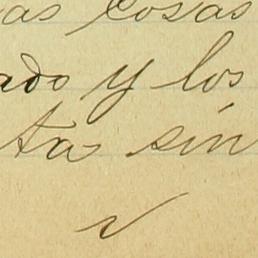 as cosas
ado y los
ta sin